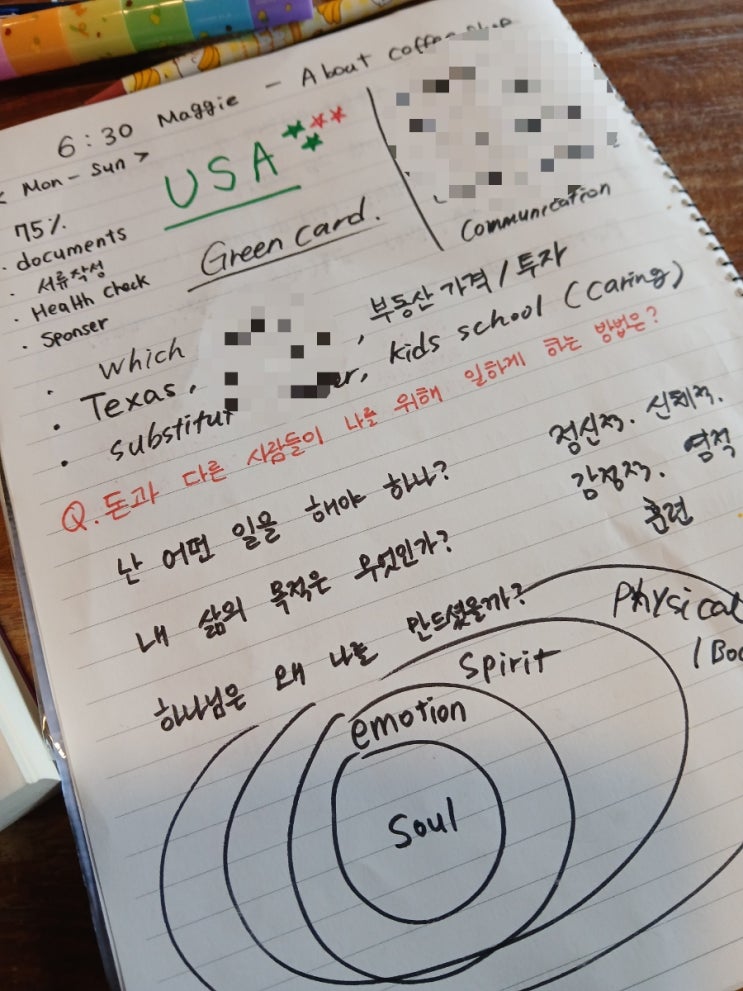 6:30 Maggie - About coffee shop
< Mon - Sun >
USA
75%
· documents
· 서류작성
· Health check
· Sponser
Green card.
Communication
· Which
, 부동산 가격 / 투자
· Texas,
, kids school (caring)
· substitut
Q. 돈과 다른 사람들이 나를 위해 일하게 하는 방법은?
난 어떤 일을 해야 하나?
내 삶의 목적은 무엇인가?
하나님은 왜 나를 만드셨을까?
정신적. 신체적.
감정적. 영적
훈련
Physical
/ Bo
Spirit
emotion
Soul